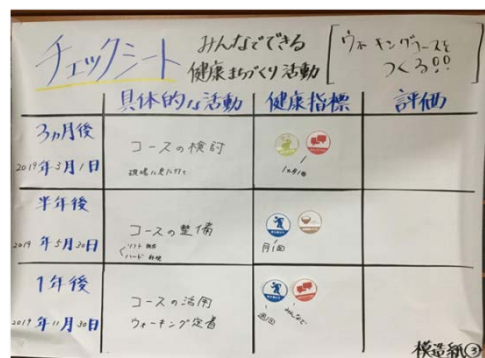 チェックシート
みんなでできる
健康まちづくり活動
ウォーキングコースを
つくる!!
具体的な活動
健康指標
評価
3ヵ月後
2019年3月1日
コースの検討
現場に見に行く
半年後
2019年5月30日
コースの整備
ソフト
ハード
月1回
1年後
2019年11月30日
コースの活用
ウォーキング定着
週1回
みんなで
模造紙③